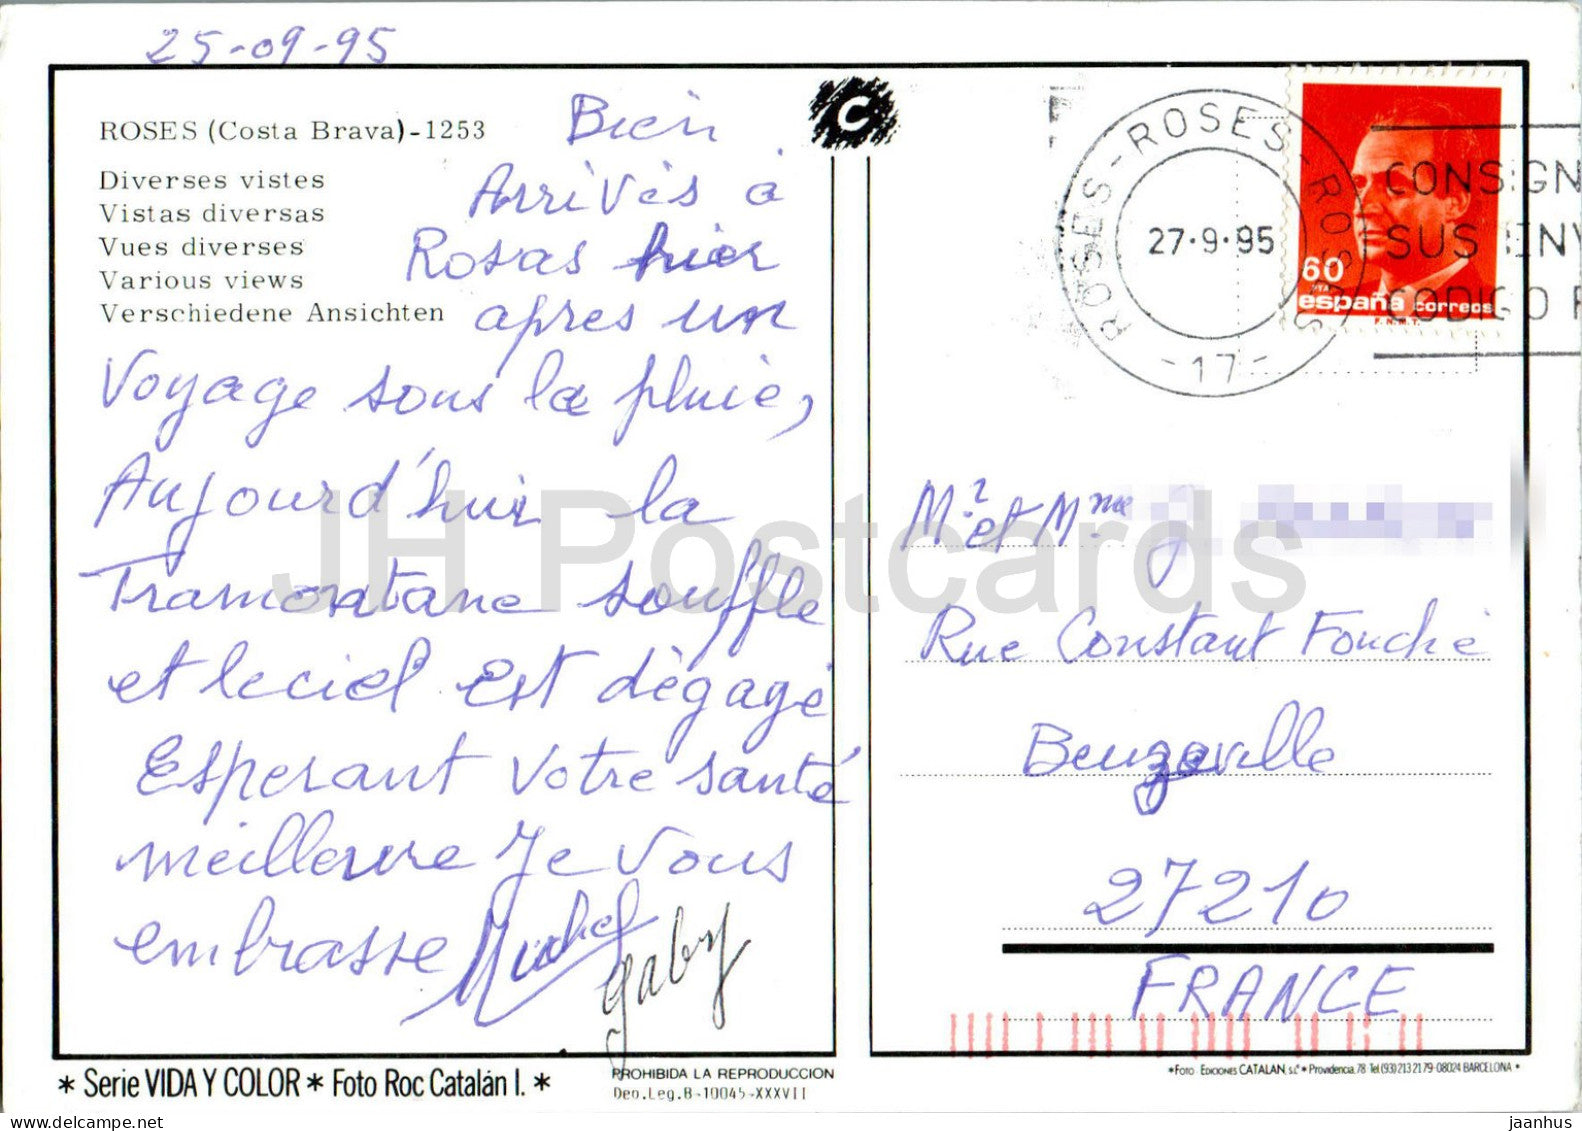 25-09-95
ROSES (Costa Brava)-1253
Diverses vistes
Vistas diversas
Vues diverses
Various views
Verschiedene Ansichten
Bien
Arrivés à
Rosas hier
apres un
Voyage sous la pluie,
Aujourd'hui la
Tramontane souffle
et le ciel est dégagé
Esperant votre santé
meilleure Je vous
embrasse Michel
gaby
C
ROSES-ROSES-ROSES-ROSES
27·9·95
-17-
CONSIGN
SUS ENV
CODIGO P
60
PTA
españa correos
F.N.M.T.
Mr et Mme J.
Rue Constant Fouché
Beuzeville
27210
FRANCE
JH Postcards
* Serie VIDA Y COLOR * Foto Roc Catalán I. *
PROHIBIDA LA REPRODUCCION
Deo.Leg.B-10045-XXXVII
*Foto · EDICIONES CATALAN, s.L* • Providencia, 78 · Tel (93) 213 21 79 - 08024 BARCELONA *
jaanhus